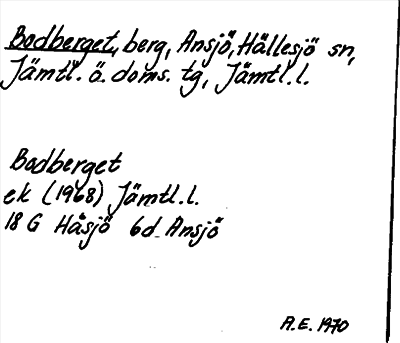 Bodberget, berg, Ansjö, Hällesjö sn,
Jämtl. ö. doms. tg, Jämtl.l.
Bodberget
ek (1968) Jämtl.l.
18 G Håsjö 6d Ansjö
A.E. 1970